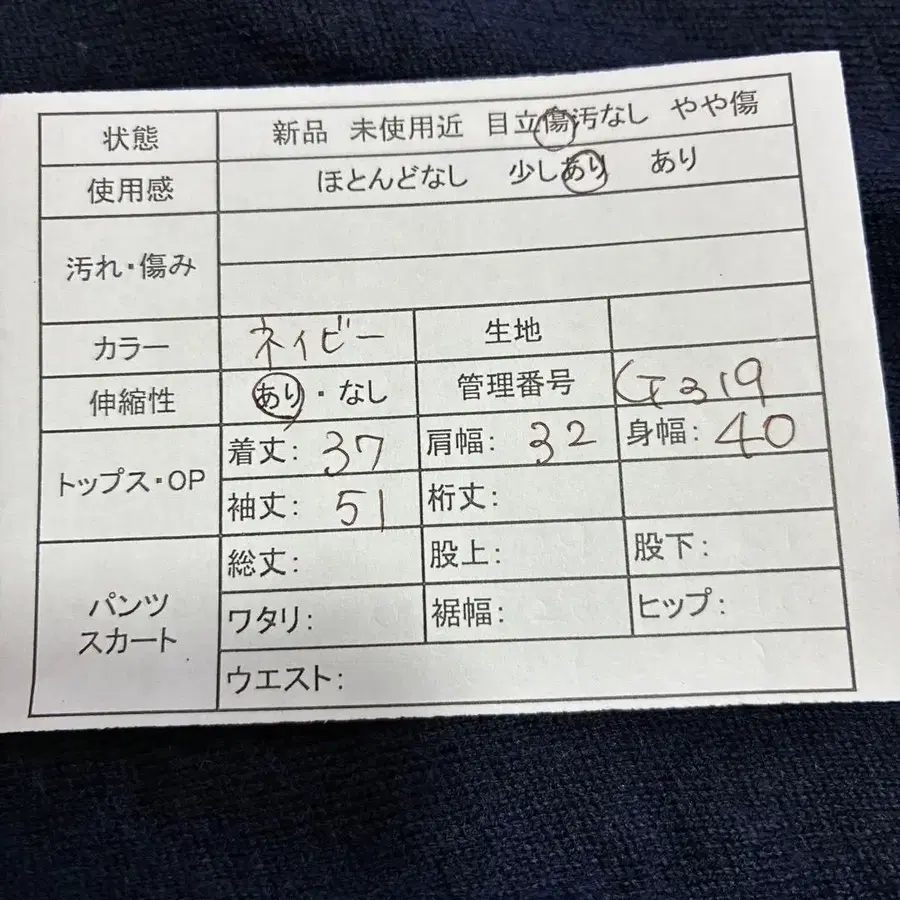 状態 新品 未使用近 目立傷汚なし やや傷
使用感 ほとんどなし 少しあり あり
汚れ・傷み
カラー ネイビー 生地
伸縮性 あり・なし 管理番号 G319
トップス・OP 着丈: 37 肩幅: 32 身幅: 40
袖丈: 51 裄丈:
パンツ スカート 総丈: 股上: 股下:
ワタリ: 裾幅: ヒップ:
ウエスト: